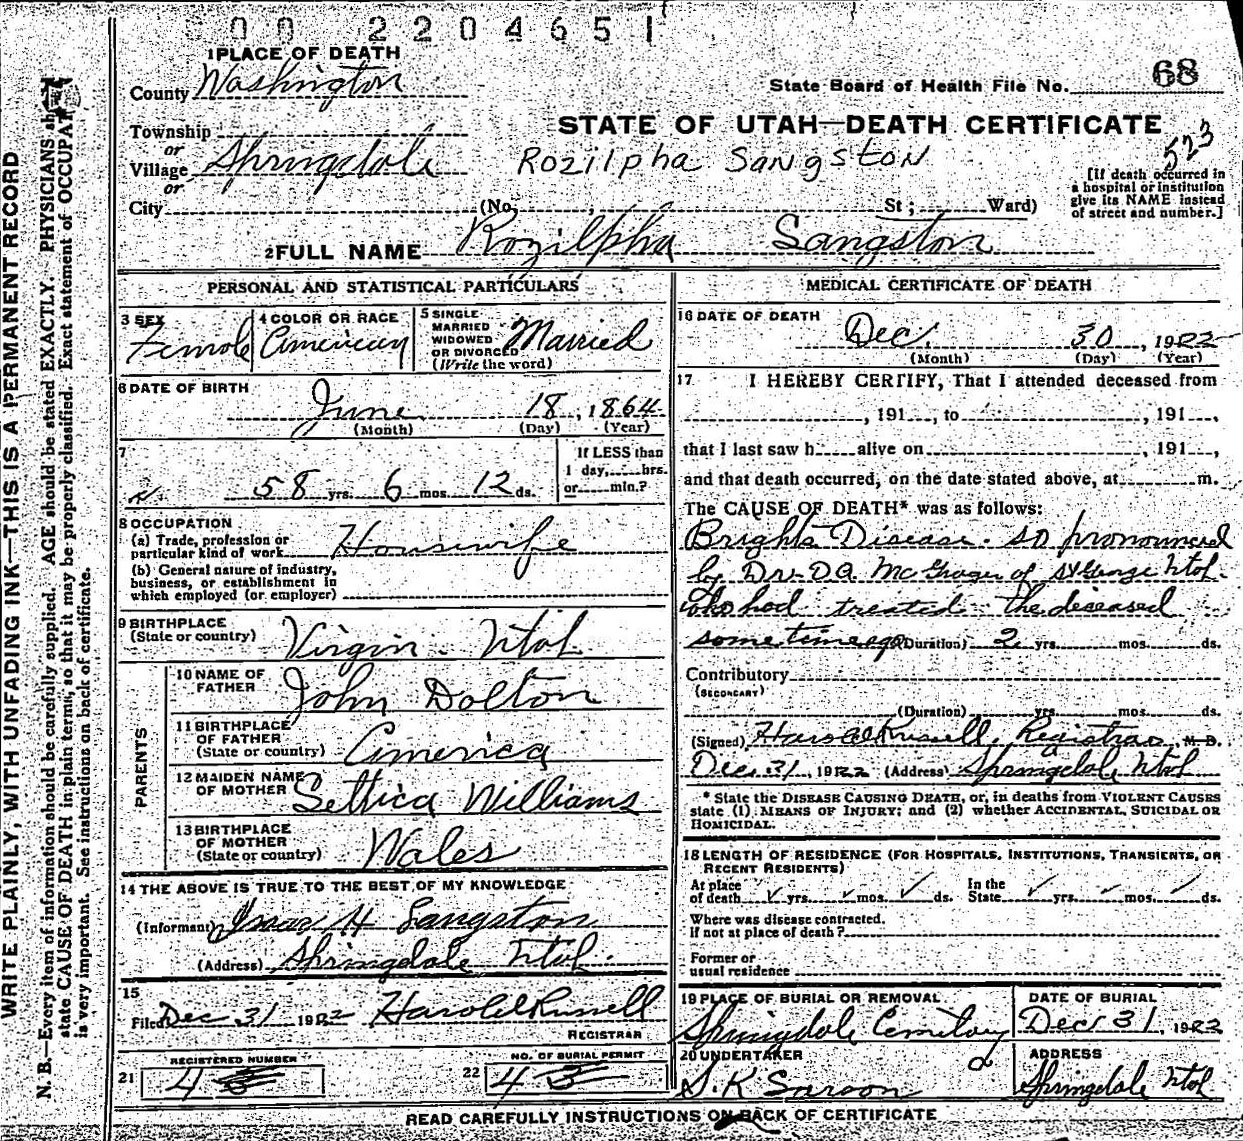 00 2204651
1 PLACE OF DEATH
County Washington
State Board of Health File No. 68
Township
or
STATE OF UTAH—DEATH CERTIFICATE
Village Springdale
Rozilpha Sangston
523
or
[If death occurred in
a hospital or institution
give its NAME instead
of street and number.]
City (No. , St; Ward)
2 FULL NAME Rozilpha Sangston
PERSONAL AND STATISTICAL PARTICULARS
3 SEX
Female
4 COLOR OR RACE
American
5 SINGLE
MARRIED
WIDOWED
OR DIVORCED
(Write the word)
Married
6 DATE OF BIRTH
June 18, 1864
(Month) (Day) (Year)
7
If LESS than
1 day, hrs.
or min.?
58 yrs. 6 mos. 12 ds.
8 OCCUPATION
(a) Trade, profession or
particular kind of work Housewife
(b) General nature of industry,
business, or establishment in
which employed (or employer)
9 BIRTHPLACE
(State or country) Virgin Utah
PARENTS
10 NAME OF
FATHER John Dolton
11 BIRTHPLACE
OF FATHER
(State or country) America
12 MAIDEN NAME
OF MOTHER Williams
13 BIRTHPLACE
OF MOTHER
(State or country) Wales
14 THE ABOVE IS TRUE TO THE BEST OF MY KNOWLEDGE
(Informant) H Langston
(Address) Springdale Utah.
15
Filed Dec 31 1922 Harold Russell
REGISTRAR
REGISTERED NUMBER
21 4
NO. OF BURIAL PERMIT
22 4
MEDICAL CERTIFICATE OF DEATH
16 DATE OF DEATH
Dec. 30, 1922
(Month) (Day) (Year)
17 I HEREBY CERTIFY, That I attended deceased from
, 191 , to , 191 ,
that I last saw h alive on , 191 ,
and that death occurred, on the date stated above, at m.
The CAUSE OF DEATH* was as follows:
Brights Disease. so pronounced
by Dr. DA of St George Utah.
who had treated the deceased
some time ago (Duration) 2 yrs. mos. ds.
Contributory
(SECONDARY)
(Duration) yrs. mos. ds.
(Signed) Harold Russell, Registrar M.D.
Dec. 31, 1922 (Address) Springdale Utah
* State the DISEASE CAUSING DEATH, or, in deaths from VIOLENT CAUSES
state (1) MEANS OF INJURY; and (2) whether ACCIDENTAL, SUICIDAL OR
HOMICIDAL.
18 LENGTH OF RESIDENCE (FOR HOSPITALS, INSTITUTIONS, TRANSIENTS, OR
RECENT RESIDENTS)
At place
of death ✓ yrs. ✓ mos. ✓ ds.
In the
State ✓ yrs. ✓ mos. ✓ ds.
Where was disease contracted.
If not at place of death?
Former or
usual residence
19 PLACE OF BURIAL OR REMOVAL
Springdale Cemetery
DATE OF BURIAL
Dec 31, 1922
20 UNDERTAKER
S. K
ADDRESS
Springdale Utah
READ CAREFULLY INSTRUCTIONS ON BACK OF CERTIFICATE
WRITE PLAINLY, WITH UNFADING INK—THIS IS A PERMANENT RECORD
N. B.—Every item of information should be carefully supplied. AGE should be stated EXACTLY. PHYSICIANS
state CAUSE OF DEATH in plain terms, so that it may be properly classified. Exact statement of
is very important. See instructions on back of certificate.